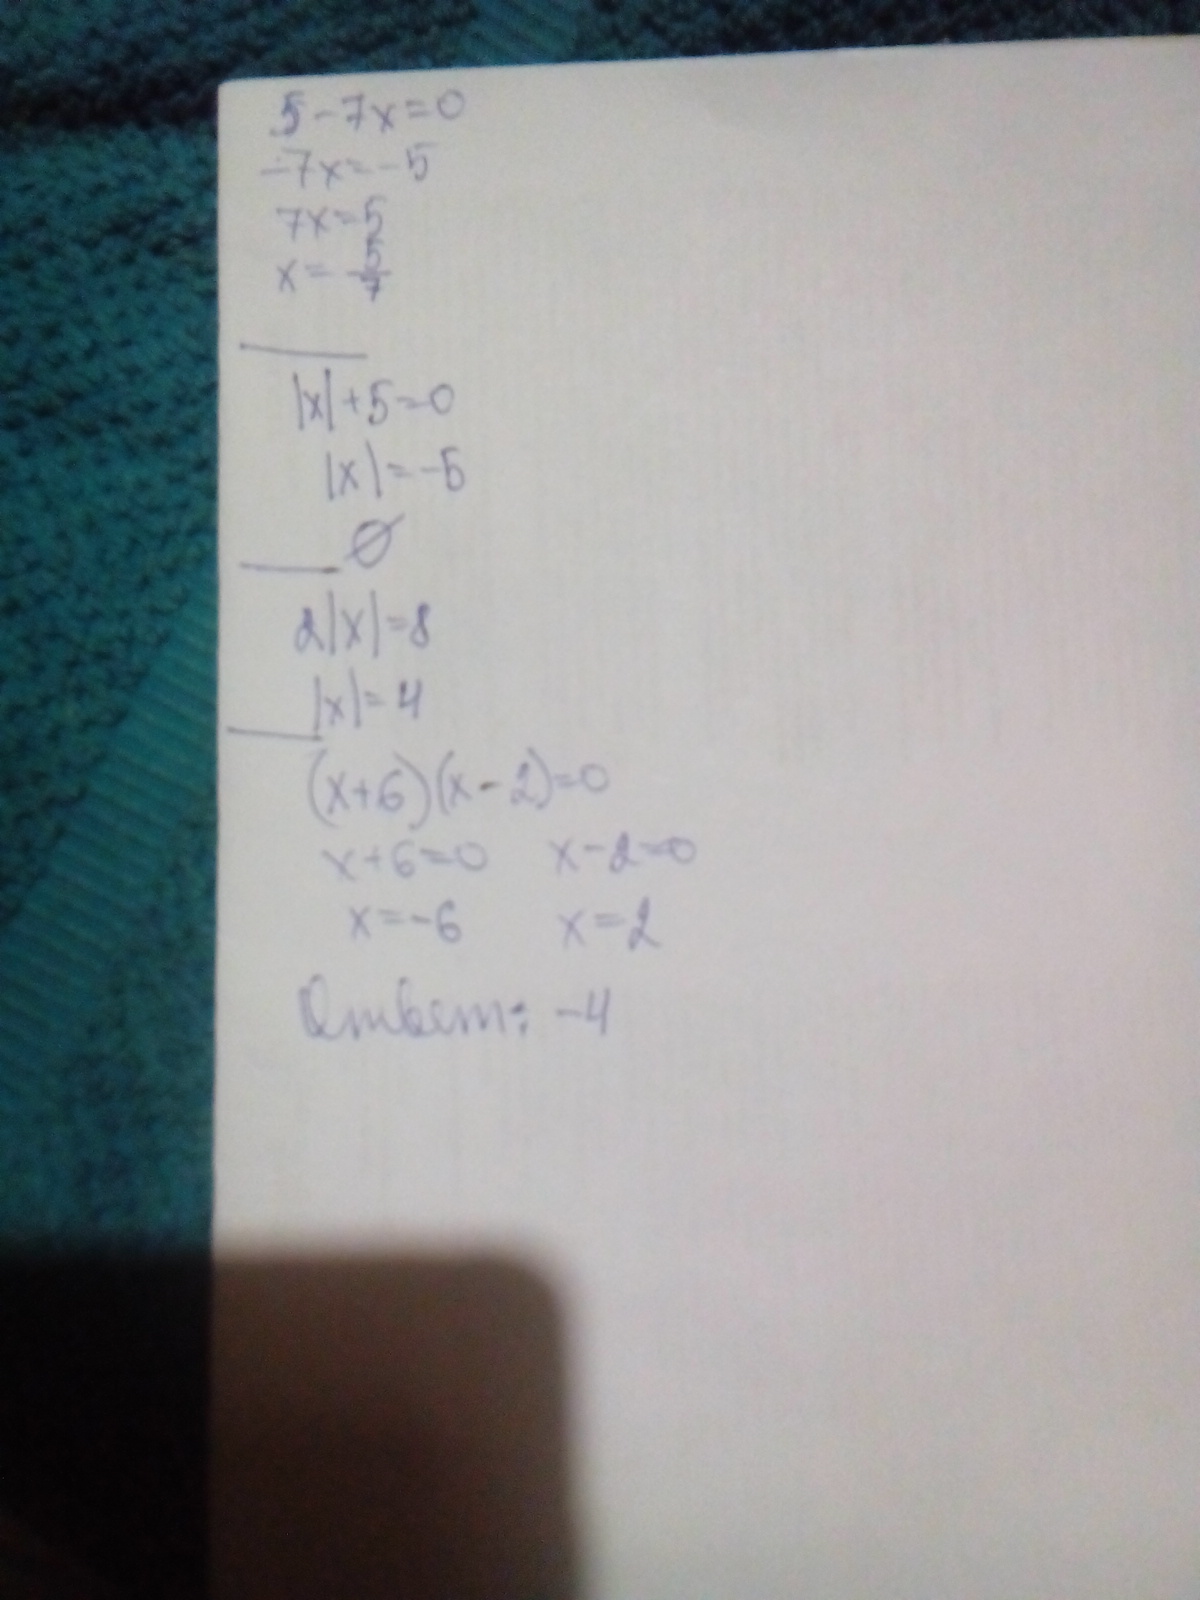 5-7x=0
-7x=-5
7x=5
x=5/7
|x|+5=0
|x|=-5
∅
2|x|=8
|x|=4
(x+6)(x-2)=0
x+6=0 x-2=0
x=-6 x=2
Ответ: -4